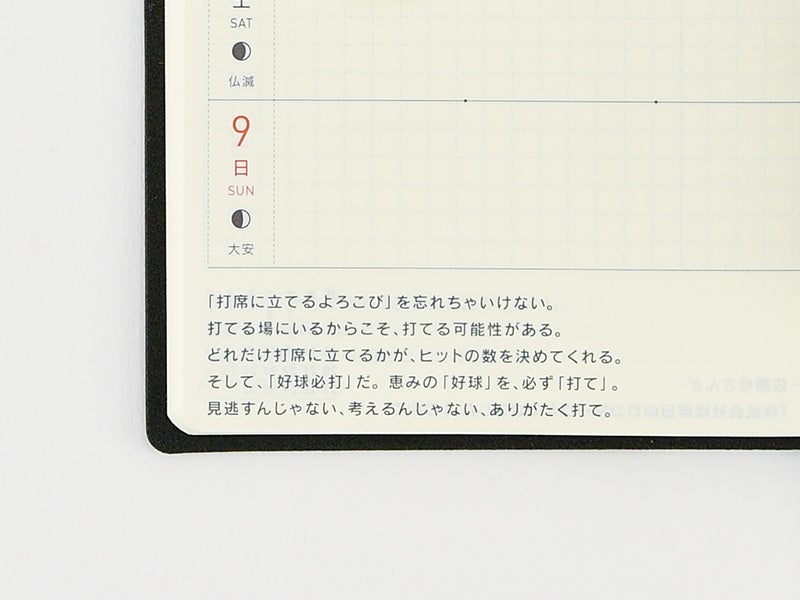 土
SAT
仏滅
9
日
SUN
大安
「打席に立てるよろこび」を忘れちゃいけない。
打てる場にいるからこそ、打てる可能性がある。
どれだけ打席に立てるかが、ヒットの数を決めてくれる。
そして、「好球必打」だ。恵みの「好球」を、必ず「打て」。
見逃すんじゃない、考えるんじゃない、ありがたく打て。